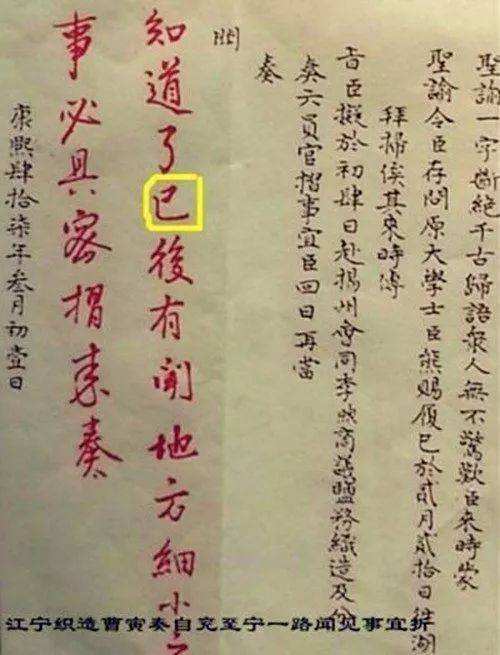 聖諭一字斷絕千古歸語衆人無不驚歎臣來時蒙
聖諭令臣存問原大學士臣熊賜履已於貳月貳拾日往湖
拜掃俟其來時傳
旨臣擬於初肆日赴揚州會同李煦商議鹽務織造及分
奏六員官摺事宜臣回日再當
奏
聞
知道了已後有聞地方細小之
事必具密摺來奏
康熙肆拾柒年叁月初壹日
江宁织造曹寅奏自兖至宁一路闻见事宜折